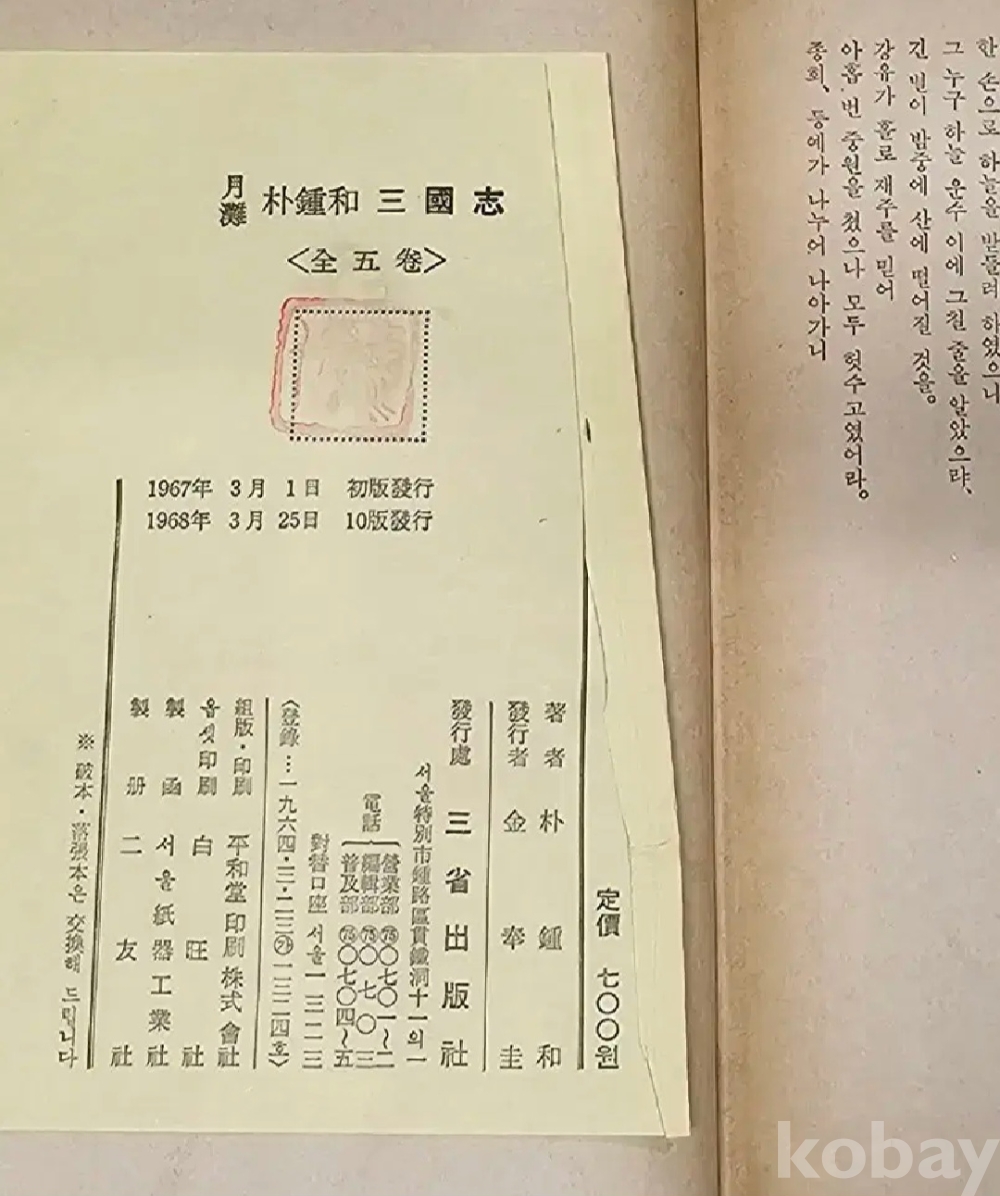 한 손으로 하늘을 받들려 하였으니
그 누구 하늘 운수 이에 그칠 줄을 알았으랴、
긴 별이 밤중에 산에 떨어질 것을。
강유가 홀로 재주를 믿어
아홉 번 중원을 쳤으나 모두 헛수고였어라。
종회、등예가 나누어 나아가니
月灘 朴鍾和 三國志
<全五卷>
1967年 3月 1日 初版發行
1968年 3月 25日 10版發行
定價 七〇〇원
著者 朴鍾和
發行者 金奉圭
發行處 三省出版社
서울特別市鍾路區貫鐵洞十一의一
電話 營業部 ㊆〇七〇一~二
編輯部 〇七〇三
普及部 〇七〇四~五
對替口座 서울一三二一三
<登錄…一九六四·三·二三㉮一三二四호>
組版·印刷 平和堂印刷株式會社
옵셋印刷 白旺社
製函 서울紙器工業社
製册 二友社
※ 破本·落張本은 交換해 드립니다
kobay